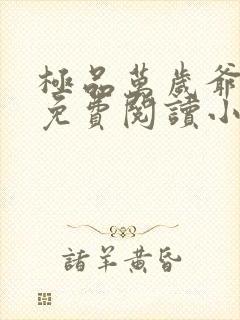 極品萬歲爺
免費閱讀小
諸羊黃昏